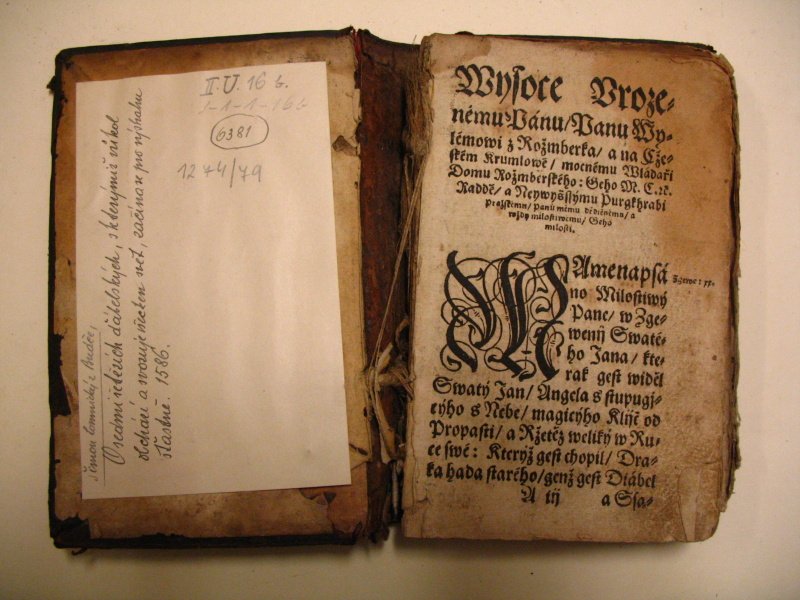 II.U.16 b.
I-1-1-16b
6381
1274/79
Šimon Lomnický z Budče,
O sedmi řetězích ďábelských, s kterýmiž vůkol
obchází a svozuje všecken svět, začínaje pro výstrahu
šťastně. 1586.
Wysoce Vroze-
nému Pánu/ Panu Wy-
lémowi z Rožmberka/ a na Cže-
ském Krumlowě/ mocnému Wládaři
Domu Rožmberského: Geho M. C. rč.
Raddě/ a Neywyššjmu Purgkhrabi
Pražskému/ Panu mému dědičnému/ a
wždy milostiwému/ Geho
milosti.
NAmenapsá Zgewe: xx.
no Milostiwý
Pane/ w Zge-
wenij Swaté-
ho Jana/ kte-
rak gest widěl
Swatý Jan/ Angela s stupugj-
cýho s Nebe/ magicýho Kljč od
Propasti/ a Ržetěz weliký w Ru-
ce swé: Kterýž gest chopil/ Dra-
ka hada starého/ genž gest Diábel
A iij a Ssa-